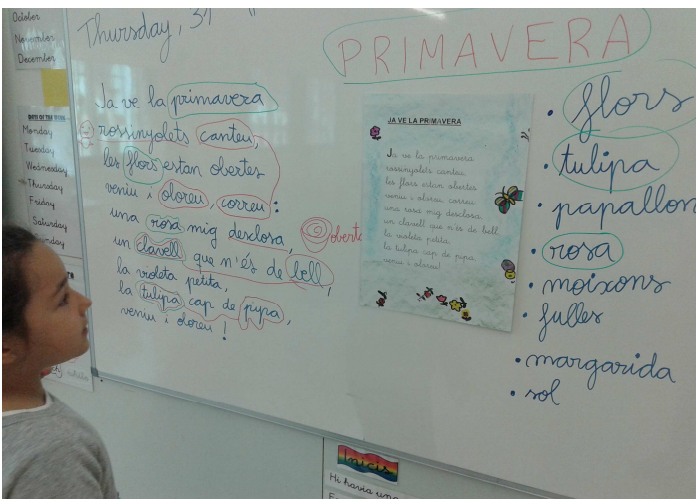 October
November
December
DAYS OF THE WEEK
Monday
Tuesday
Wednesday
Thursday
Friday
Saturday
Thursday, 31
Ja ve la primavera
rossinyolets canteu,
les flors estan obertes
veniu i oloreu, correu:
una rosa mig desclosa,
oberta
un clavell que n'és de bell,
la violeta petita,
la tulipa cap de pipa,
veniu i oloreu!
PRIMAVERA
JA VE LA PRIMAVERA
Ja ve la primavera
rossinyolets canteu
les flors estan obertes
veniu i oloreu correu
una rosa mig desclosa
un clavell que n'és de bell
la violeta petita
la tulipa cap de pipa,
veniu i oloreu!
• flors
• tulipa
• papallon
• rosa
• moixons
• fulles
• margarida
• sol
Inicis
Hi havia una